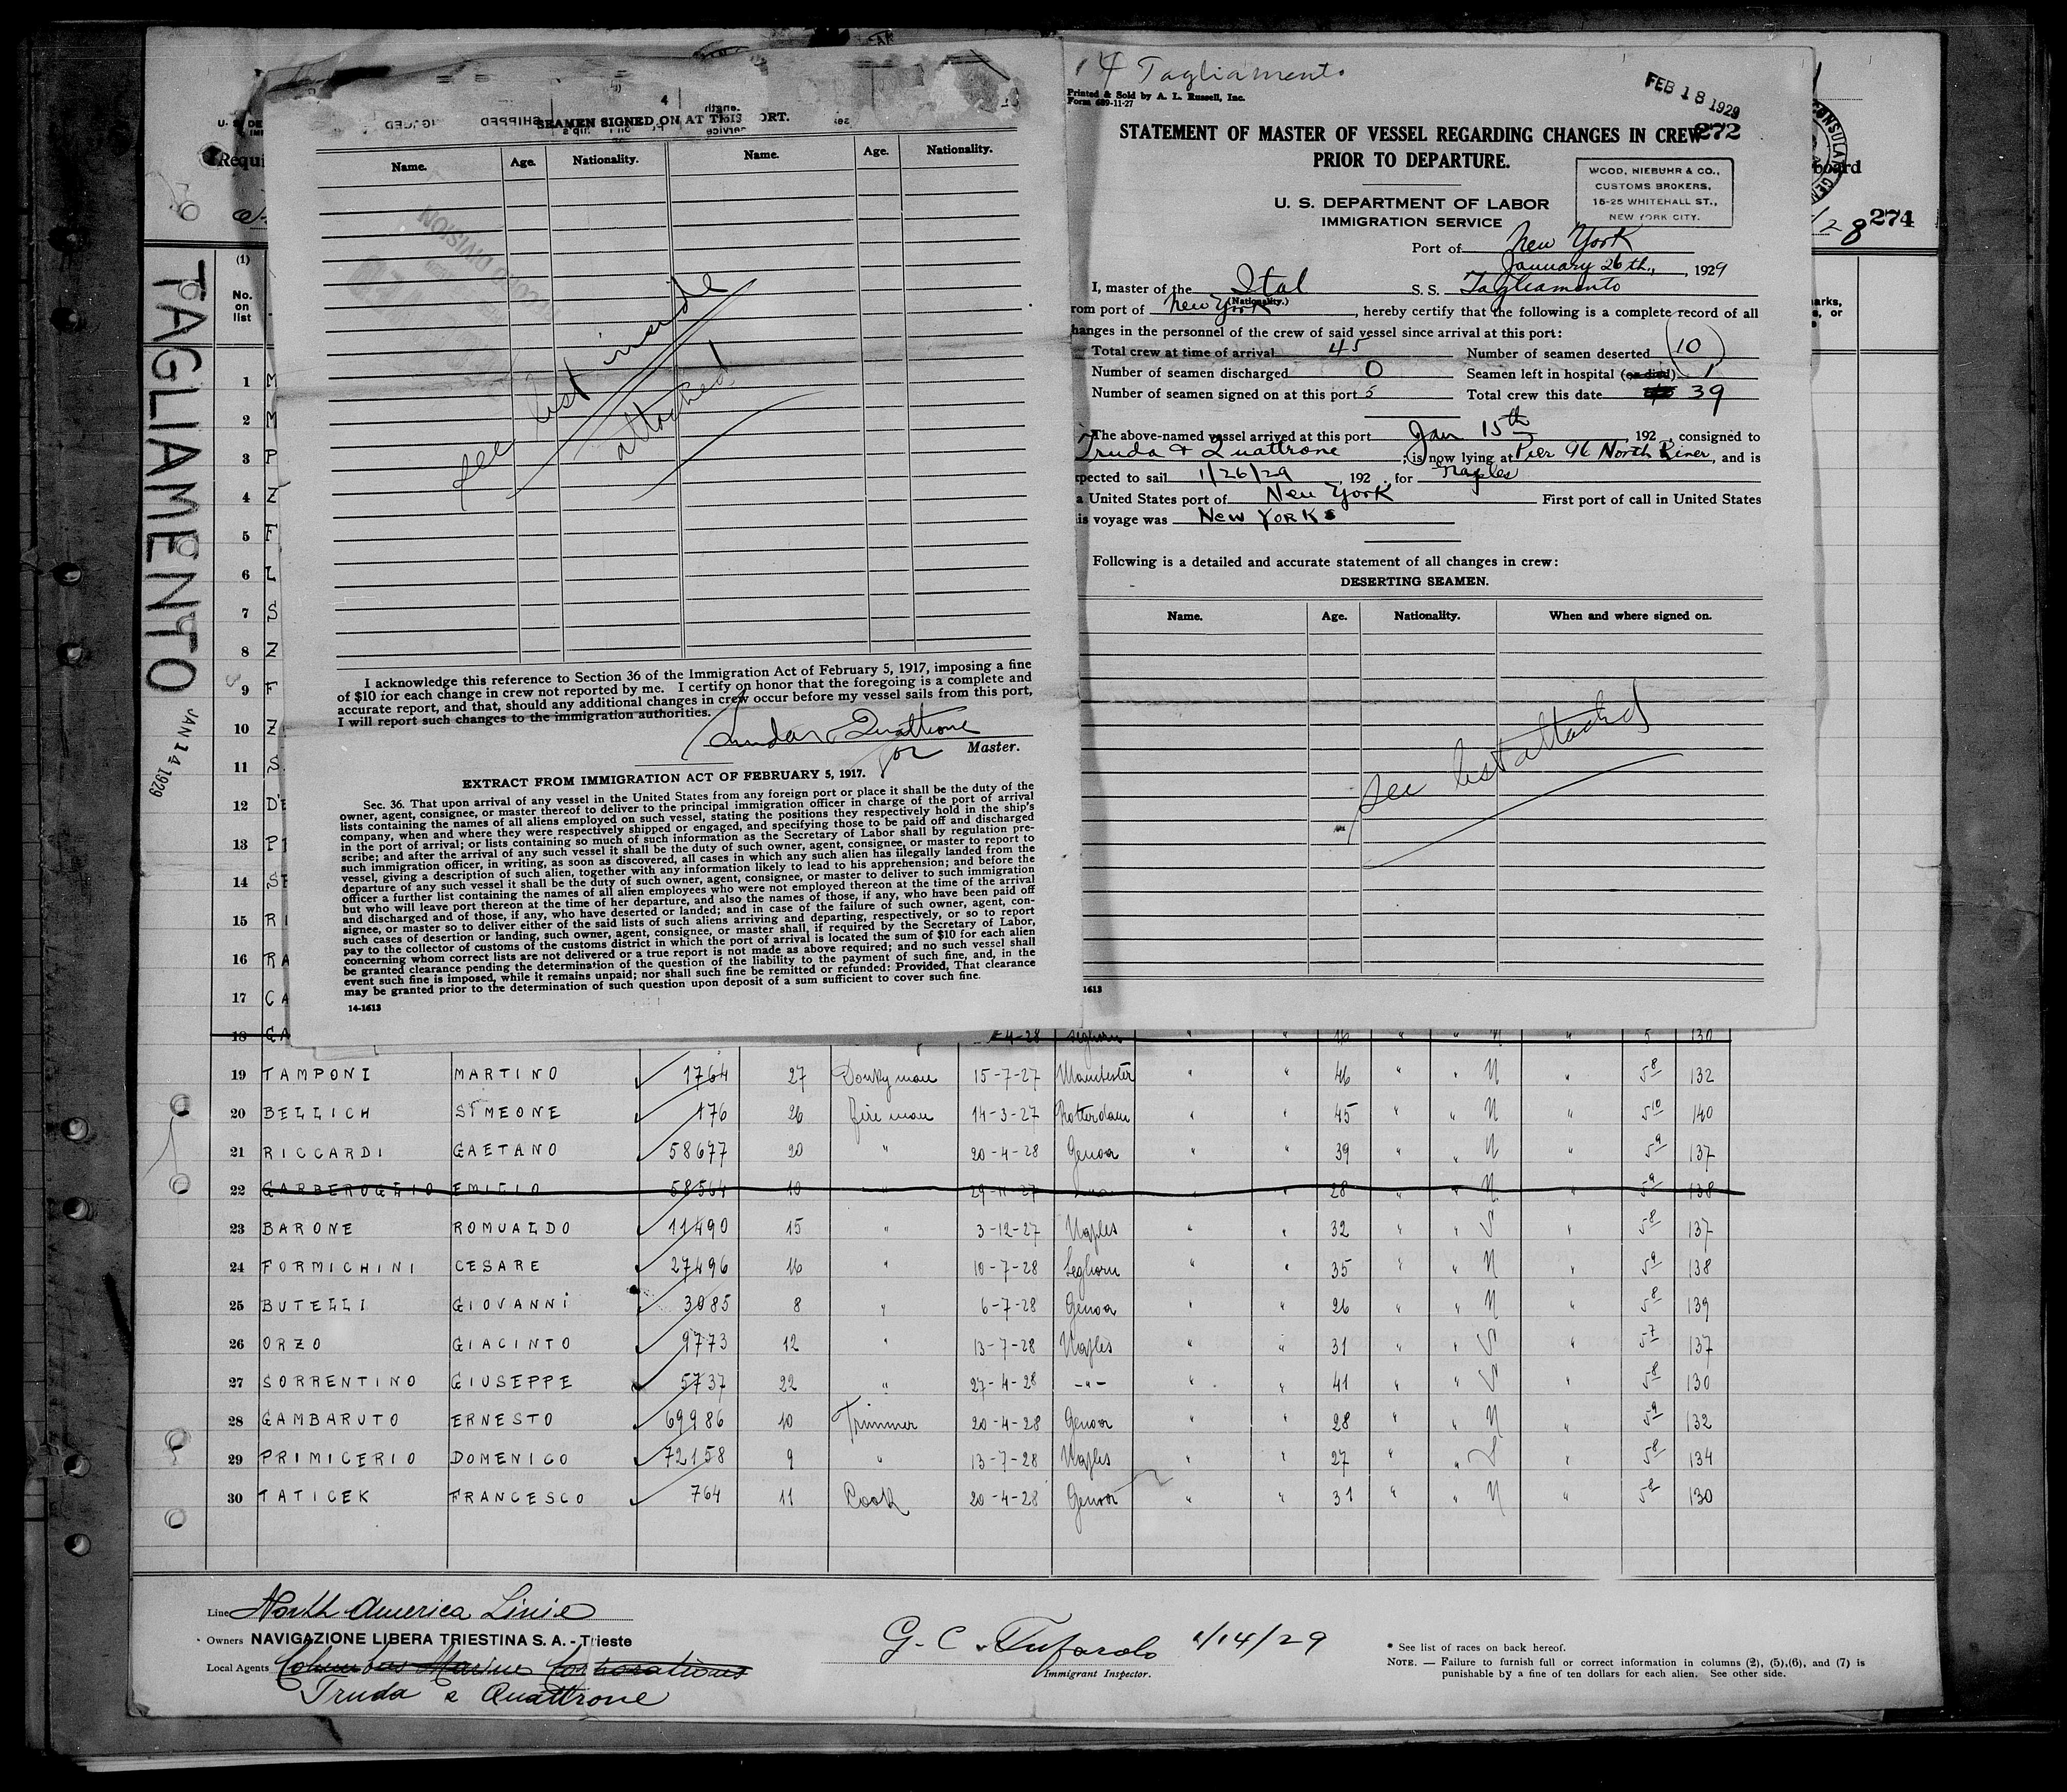 SEAMEN SIGNED ON AT THIS PORT.
Name. Age. Nationality. Name. Age. Nationality.
see list inside
attached
I acknowledge this reference to Section 36 of the Immigration Act of February 5, 1917, imposing a fine
of $10 for each change in crew not reported by me. I certify on honor that the foregoing is a complete and
accurate report, and that, should any additional changes in crew occur before my vessel sails from this port,
I will report such changes to the immigration authorities.
Truda & Quattrone
for Master.
EXTRACT FROM IMMIGRATION ACT OF FEBRUARY 5, 1917.
Sec. 36. That upon arrival of any vessel in the United States from any foreign port or place it shall be the duty of the
owner, agent, consignee, or master thereof to deliver to the principal immigration officer in charge of the port of arrival
lists containing the names of all aliens employed on such vessel, stating the positions they respectively hold in the ship's
company, when and where they were respectively shipped or engaged, and specifying those to be paid off and discharged
in the port of arrival; or lists containing so much of such information as the Secretary of Labor shall by regulation pre-
scribe; and after the arrival of any such vessel it shall be the duty of such owner, agent, consignee, or master to report to
such immigration officer, in writing, as soon as discovered, all cases in which any such alien has illegally landed from the
vessel, giving a description of such alien, together with any information likely to lead to his apprehension; and before the
departure of any such vessel it shall be the duty of such owner, agent, consignee, or master to deliver to such immigration
officer a further list containing the names of all alien employees who were not employed thereon at the time of the arrival
but who will leave port thereon at the time of her departure, and also the names of those, if any, who have been paid off
and discharged and of those, if any, who have deserted or landed; and in case of the failure of such owner, agent, con-
signee, or master so to deliver either of the said lists of such aliens arriving and departing, respectively, or so to report
such cases of desertion or landing, such owner, agent, consignee, or master shall, if required by the Secretary of Labor,
pay to the collector of customs of the customs district in which the port of arrival is located the sum of $10 for each alien
concerning whom correct lists are not delivered or a true report is not made as above required; and no such vessel shall
be granted clearance pending the determination of the question of the liability to the payment of such fine, and, in the
event such fine is imposed, while it remains unpaid; nor shall such fine be remitted or refunded: Provided, That clearance
may be granted prior to the determination of such question upon deposit of a sum sufficient to cover such fine.
14-1613
4 Tagliamento
Printed & Sold by A. L. Russell, Inc.
Form 689-11-27
FEB 18 1929
272
STATEMENT OF MASTER OF VESSEL REGARDING CHANGES IN CREW
PRIOR TO DEPARTURE.
WOOD, NIEBUHR & CO.,
CUSTOMS BROKERS,
15-25 WHITEHALL ST.,
NEW YORK CITY.
U. S. DEPARTMENT OF LABOR
IMMIGRATION SERVICE
Port of New York
January 26th., , 1929
I, master of the Ital S. S. Tagliamento
(Nationality.)
rom port of New York , hereby certify that the following is a complete record of all
hanges in the personnel of the crew of said vessel since arrival at this port:
Total crew at time of arrival 45 Number of seamen deserted (10)
Number of seamen discharged 0 Seamen left in hospital (or died) 1
Number of seamen signed on at this port 5 Total crew this date 39
The above-named vessel arrived at this port Jan 15th , 192 , consigned to
Truda & Quattrone ; is now lying at Pier 96 North River, and is
pected to sail 1/26/29 , 192 , for Naples
a United States port of New York First port of call in United States
is voyage was New York
Following is a detailed and accurate statement of all changes in crew:
DESERTING SEAMEN.
Name. Age. Nationality. When and where signed on.
see list attached
1613
274
board
TAGLIAMENTO
JAN 14 1929
(1)
No.
on
list
1 M
2 M
3 P
4 Z
5 F
6 L
7 S
8 Z
9 F
10 Z
11 S
12 D'E
13 P
14 S
15 R I
16 R A
17 C A
18 C A 4-28 Leghorn " " 16 " " N " 5 130
19 TAMPONI MARTINO 1764 27 Donkyman 15-7-27 Manchester " " 46 " " N " 5 8 132
20 BELLICH SIMEONE 176 26 fire man 14-3-27 Rotterdam " " 45 " " N " 5 10 140
21 RICCARDI GAETANO 58677 20 " 20-4-28 Genoa " " 39 " " N " 5 9 137
22 GARBEROGLIO EMILIO 58564 10 " 29-11-27 " " " 28 " " N " 5 9 138
23 BARONE ROMUALDO 11490 15 " 3-12-27 Naples " " 32 " " S " 5 8 137
24 FORMICHINI CESARE 27496 16 " 10-7-28 Leghorn " " 35 " " N " 5 9 138
25 BUTELLI GIOVANNI 3085 8 " 6-7-28 Genoa " " 26 " " N " 5 8 139
26 ORZO GIACINTO 9773 12 " 13-7-28 Naples " " 31 " " S " 5 7 137
27 SORRENTINO GIUSEPPE 5737 22 " 27-4-28 -"- " " 41 " " S " 5 8 130
28 GAMBARUTO ERNESTO 69986 10 Trimmer 20-4-28 Genoa " " 28 " " N " 5 9 132
29 PRIMICERIO DOMENICO 72158 9 " 13-7-28 Naples " " 27 " " S " 5 8 134
30 TATICEK FRANCESCO 764 11 Cook 20-4-28 Genoa " " 31 " " N " 5 8 130
Line North America Linie
Owners NAVIGAZIONE LIBERA TRIESTINA S. A. - Trieste
Local Agents Columbus Marine Corporations
Truda e Quattrone
G. C. Tufarolo 1/14/29
Immigrant Inspector.
* See list of races on back hereof.
NOTE. — Failure to furnish full or correct information in columns (2), (5), (6), and (7) is
punishable by a fine of ten dollars for each alien. See other side.